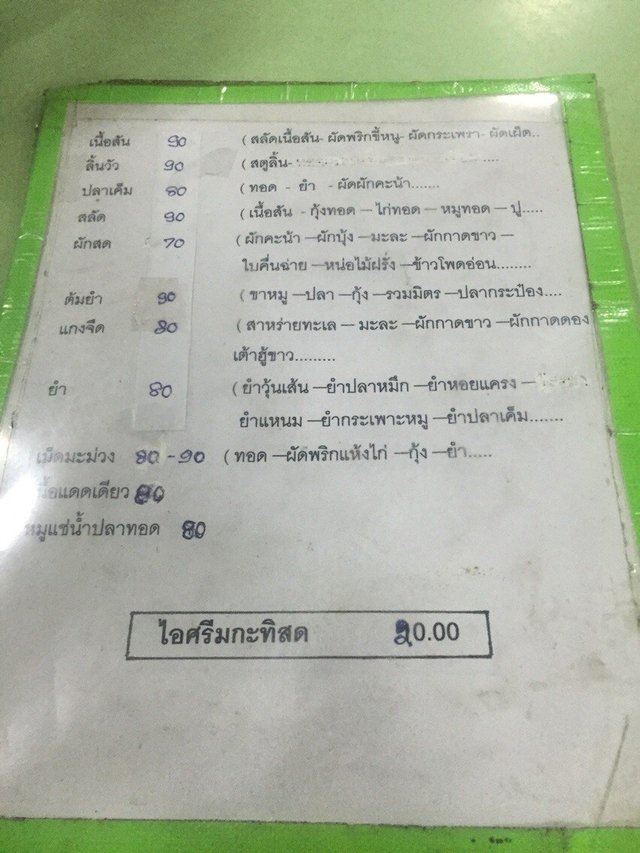 เนื้อสัน 90 ( สลัดเนื้อสัน- ผัดพริกขี้หนู- ผัดกระเพรา- ผัดเผ็ด..
ลิ้นวัว 90 ( สตูลิ้น-
ปลาเค็ม 80 ( ทอด - ยำ - ผัดผักคะน้า.......
สลัด 90 ( เนื้อสัน - กุ้งทอด – ไก่ทอด – หมูทอด – ปู.....
ผักสด 70 ( ผักคะน้า –ผักบุ้ง – มะละ –ผักกาดขาว –
ใบคื่นฉ่าย –หน่อไม้ฝรั่ง –ข้าวโพดอ่อน........
ต้มยำ 90 ( ขาหมู –ปลา –กุ้ง –รวมมิตร –ปลากระป๋อง....
แกงจืด 80 ( สาหร่ายทะเล – มะละ –ผักกาดขาว –ผักกาดดอง
เต้าฮู้ขาว.........
ยำ 80 ( ยำวุ้นเส้น –ยำปลาหมึก –ยำหอยแครง –
ยำแหนม –ยำกระเพาะหมู –ยำปลาเค็ม.......
เม็ดมะม่วง 80 -90 ( ทอด –ผัดพริกแห้งไก่ –กุ้ง –ยำ.....
เนื้อแดดเดียว 80
หมูแช่น้ำปลาทอด 80
ไอศรีมกะทิสด 20.00